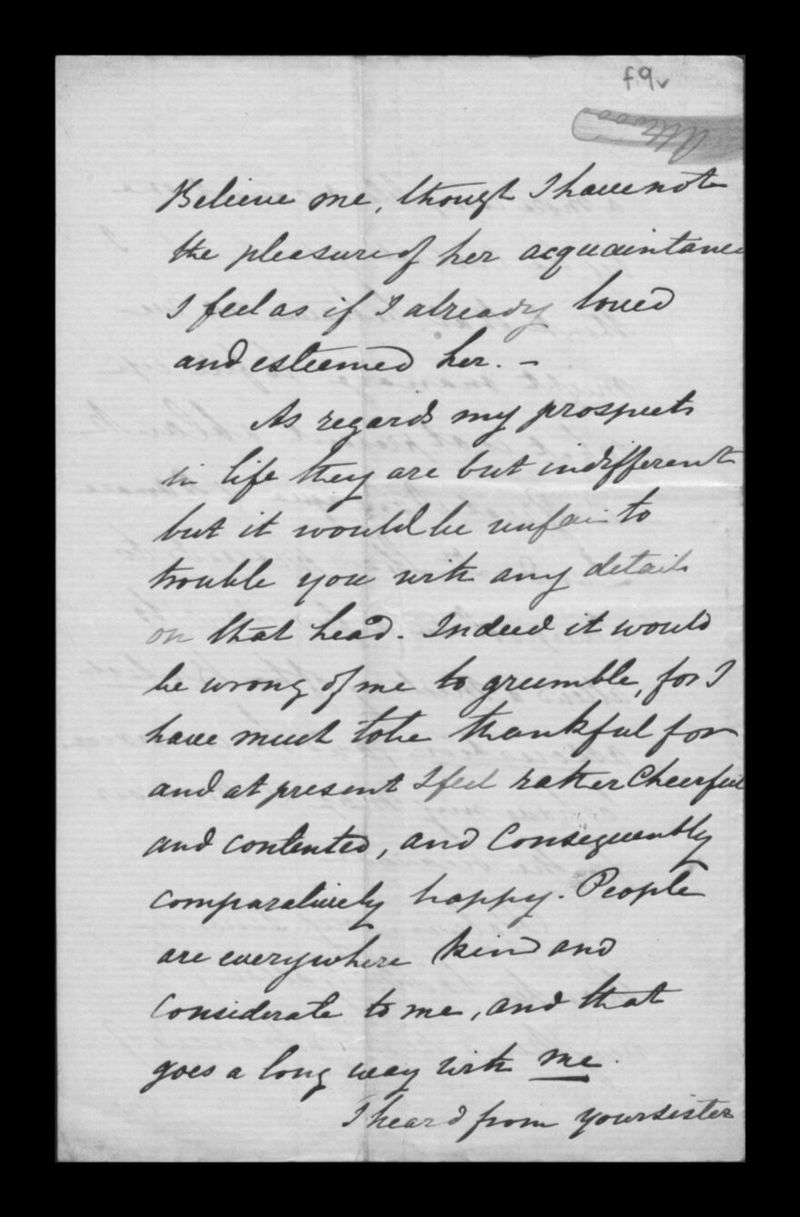 f9v
Believe me, though I have not
the pleasure of her acquaintance
I feel as if I already loved
and esteemed her. —
As regards my prospects
in life they are but indifferent
but it would be unfair to
trouble you with any details
on that head. Indeed it would
be wrong of me to grumble, for I
have much to be thankful for
and at present I feel rather Cheerful
and contented, and Consequently
comparatively happy. People
are everywhere kind and
Considerate to me, and that
goes a long way with me.
I heard from your sister